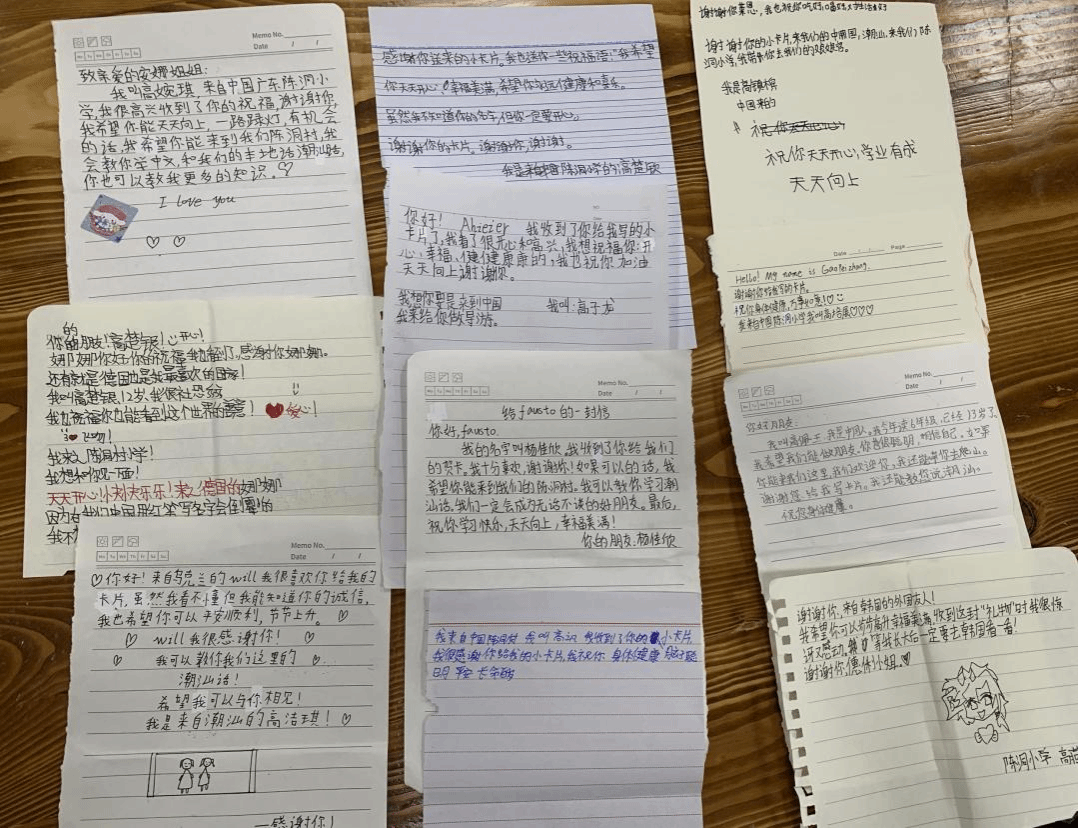 Memo No.
Date / /
致亲爱的安娜姐姐:
我叫高婉琪,来自中国广东陈洞小
学,我很高兴收到了你的祝福,谢谢你,
我希望你能天天向上,一路踩灯,有机会
的话,我希望你能来到我们陈洞村,我
会教你学中文,和我们的本地话潮汕话,
你也可以教我更多的知识。♡
I love you
的
你的朋友!高楚银!开心!
娜娜你好你的祝福我也看到了,感谢你娜娜。
还有就是德国也是我最喜欢的国家!
我叫高楚银,12岁,我很社恐
我也祝福你也能看到这个世界的
我来入陈洞村小学!
我想和你见一面!
天天开心!快快乐乐!来之德国的娜娜
因为在我们中国用红笔写名字会倒霉的
Memo No.
Date / /
♡你好!来自乌克兰的will我很喜欢你给我的
卡片,虽然我看不懂但我能知道你的诚信,
我也希望你可以平安顺利,节节上升。♡
♡ will我很感谢你! ♡
♡ 我可以教你我们这里的 ♡
潮汕话!
希望我可以与你相见!
我是来自潮汕的高洁琪!♡
—感谢你!
感谢你送来的小卡片。我也送你一些祝福语:“我希望
你天天开心,幸福美满,希望你的远健康和喜乐。
虽然我不知道你的名字,但你一定要开心。
谢谢你的卡片。谢谢你,谢谢。
我是来自中国陈洞小学的高楚欣
你好! Ahiezer 我收到了你给我写的小
卡片了,我看了很开心和高兴,我想祝福你:开
心、幸福、健健康康的,我也祝你加油
天天向上谢谢你。
我想你要是来到中国 我叫:高于龙
我来给你做导游。
Memo No.
Date / /
给fausto的一封信
你好,fausto.
我的名字叫杨佳欣,我收到了你给我们
的贺卡。我十分喜欢,谢谢你!如果可以的话,我
希望你能来到我们的陈洞村。我可以教你学习潮
汕话。我们一定会成为无话不谈的好朋友。最后,
祝你学习快乐,天天向上,幸福美满!
你的朋友:杨佳欣
我来自中国陈洞村 我叫高 我收到了你的小卡片
我很感谢你给我的小卡片,我祝你 身体健康
明 平安
谢谢你莱恩,我也祝你吃好喝好大学生活美好
谢谢你的小卡片,来我们的中国,潮汕,来我们陈
洞小学,我带你去我们的
我是高镇槟
中国来的
祝你天天开心
祝你天天开心,学业有成
天天向上
Date: Page
Hello! My name is Gaopeizhang.
谢谢你给我写的卡片。
祝你身体健康,万事如意!♡
我来自中国陈洞小学我叫高培展♡♡♡
Memo No.
Date / /
你好朋友:
我叫高 我是中国人。我今年读6年级,已经13岁了,
我希望我们能做朋友。你有很聪明,相信自己。如果
你能来我们这里,我们欢迎你,我还能带你去爬山。
谢谢您给我写卡片。我还能教您说潮汕。
祝您身体健康。
谢谢你,来自韩国的外国友人!
我希望你可以步步高升幸福美满,收到这封“礼物”时我很惊
讶又感动,等我长大后一定要去韩国看一看!
谢谢你,惠体小姐。♡
陈洞小学 高